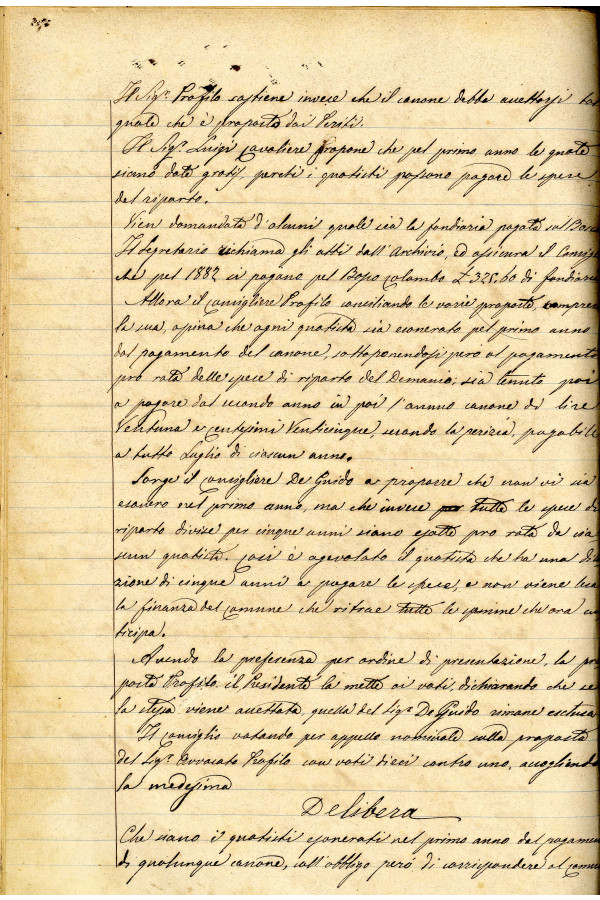 Il Sig.r Profilo sostiene invece che il canone debba accettarsi tal
quale che è proposto dai Periti.
Il Sig.r Luigi Cavaliere propone che pel primo anno le quote
siano date gratis, perché i quotisti possano pagare le spese
del riparto.
Vien domandato d'alcuni quale sia la fondiaria pagata sul Bosco
Il Segretario richiama gli atti dall'Archivio, ed assicura il Consig
che pel 1882 si pagano pel Bosco Colombo £ 325,60 di fondiaria
Allora il consigliere Profilo conciliando le varie proposte, compresa
la sua, opina che ogni quotista sia esonerato pel primo anno
dal pagamento del canone, sottoponendosi però al pagamento
pro rata delle spese di riparto del Demanio; sia tenuto poi
a pagare dal secondo anno in poi l'annuo canone di lire
Ventuna e centesimi Venticinque, secondo la perizia, pagabile
a tutto Luglio di ciascun anno.
Sorge il consigliere De Guido a proporre che non vi sia
esonero nel primo anno, ma che invece tutte le spese di
riparto divise per cinque anni siano esatte pro rata da cia
scun quotista. Così è agevolato il quotista che ha una dila
zione di cinque anni a pagare le spese, e non viene lesa
la finanza del comune che ritrae tutte le somme che ora an
ticipa.
Avendo la preferenza per ordine di presentazione, la pro
posta Profilo, il Presidente la mette ai voti, dichiarando che se
la stessa viene accettata, quella del Sig.r De Guido rimane esclusa
Il Consiglio votando per appello nominale sulla proposta
del Sig.r Avvocato Profilo con voti dieci contro uno, accogliendo
la medesima
Delibera
Che siano i quotisti esonerati nel primo anno del pagamen
di qualunque canone, coll'obbligo però di corrispondere al comun